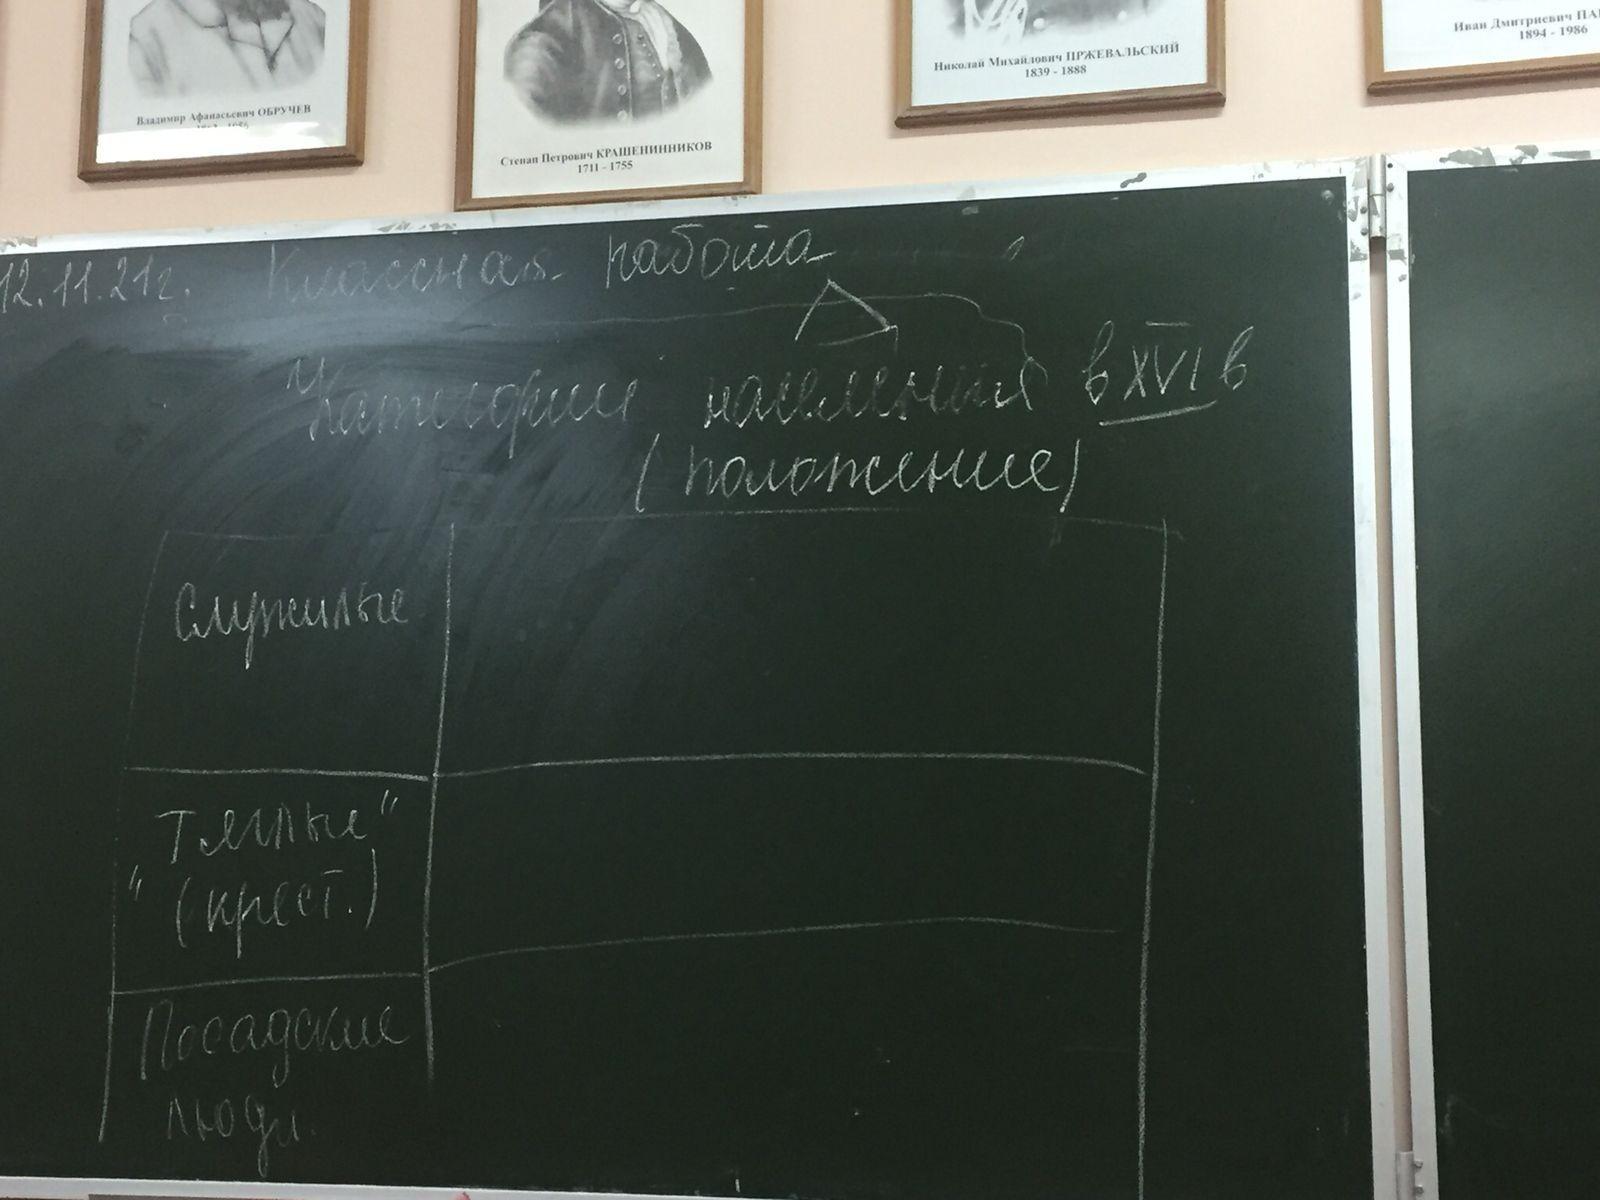 Владимир Афанасьевич ОБРУЧЕВ
Степан Петрович КРАШЕНИННИКОВ
1711 - 1755
Николай Михайлович ПРЖЕВАЛЬСКИЙ
1839 - 1888
Иван Дмитриевич
1894 - 1986
12.11.21г. Классная работа
Категории населения в XVI в
(положение)
Служилые
Тяглые"
" (крест.)
Посадские
люди.